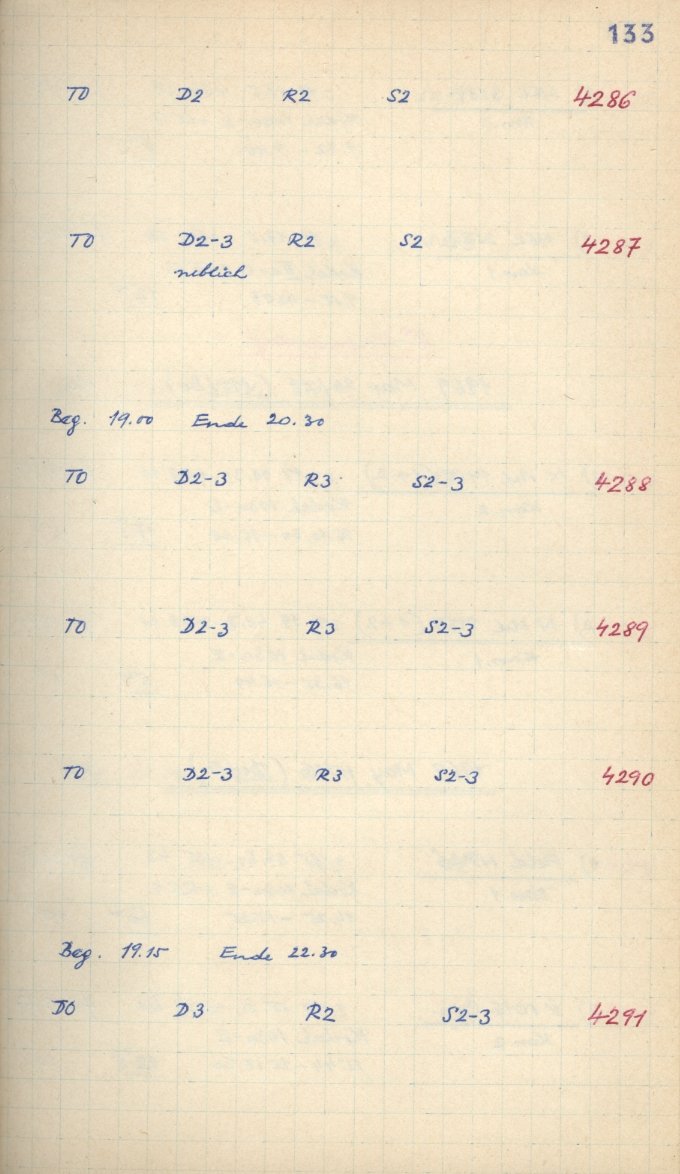 133
TO D2 R2 S2 4286
TO D2-3 R2 S2 4287
neblich
Beg. 19.00 Ende 20.30
TO D2-3 R3 S2-3 4288
TO D2-3 R3 S2-3 4289
TO D2-3 R3 S2-3 4290
Beg. 19.15 Ende 22.30
DO D3 R2 S2-3 4291